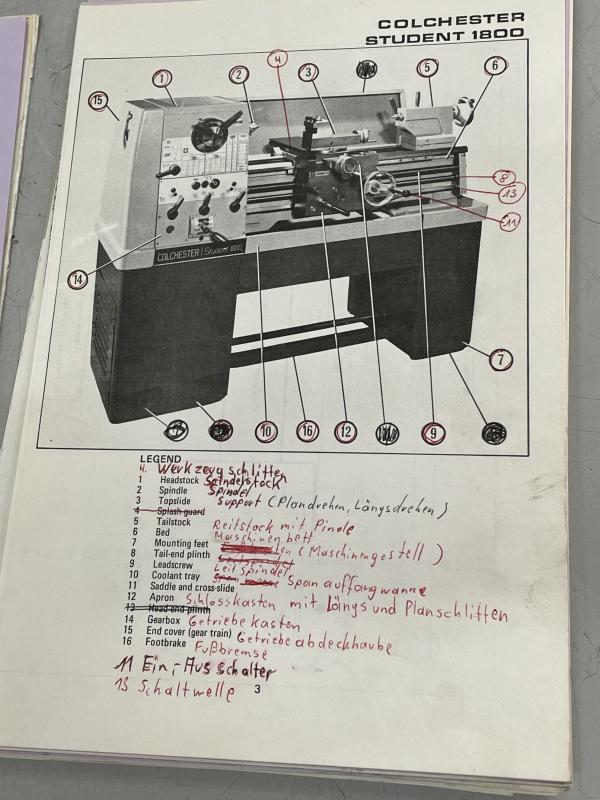 COLCHESTER
STUDENT 1800
4
1 2 3 5 6
15
8
13
11
COLCHESTER Student 1800
14
7
10 16 12 9
LEGEND
4. Werkzeugschlitten
1 Headstock Spindelstock
2 Spindle Spindel
3 Topslide Support (Plandrehen, Längsdrehen)
4 Splash guard
5 Tailstock Reitstock mit Pinole
6 Bed Maschinenbett
7 Mounting feet (Maschinengestell)
8 Tail-end plinth
9 Leadscrew Leitspindel
10 Coolant tray Span auffangwanne
11 Saddle and cross-slide
12 Apron Schlosskasten mit Längs und Planschlitten
13 Head end plinth
14 Gearbox Getriebekasten
15 End cover (gear train) Getriebeabdeckhaube
16 Footbrake Fußbremse
11 Ein,- Aus schalter
13 Schaltwelle
3